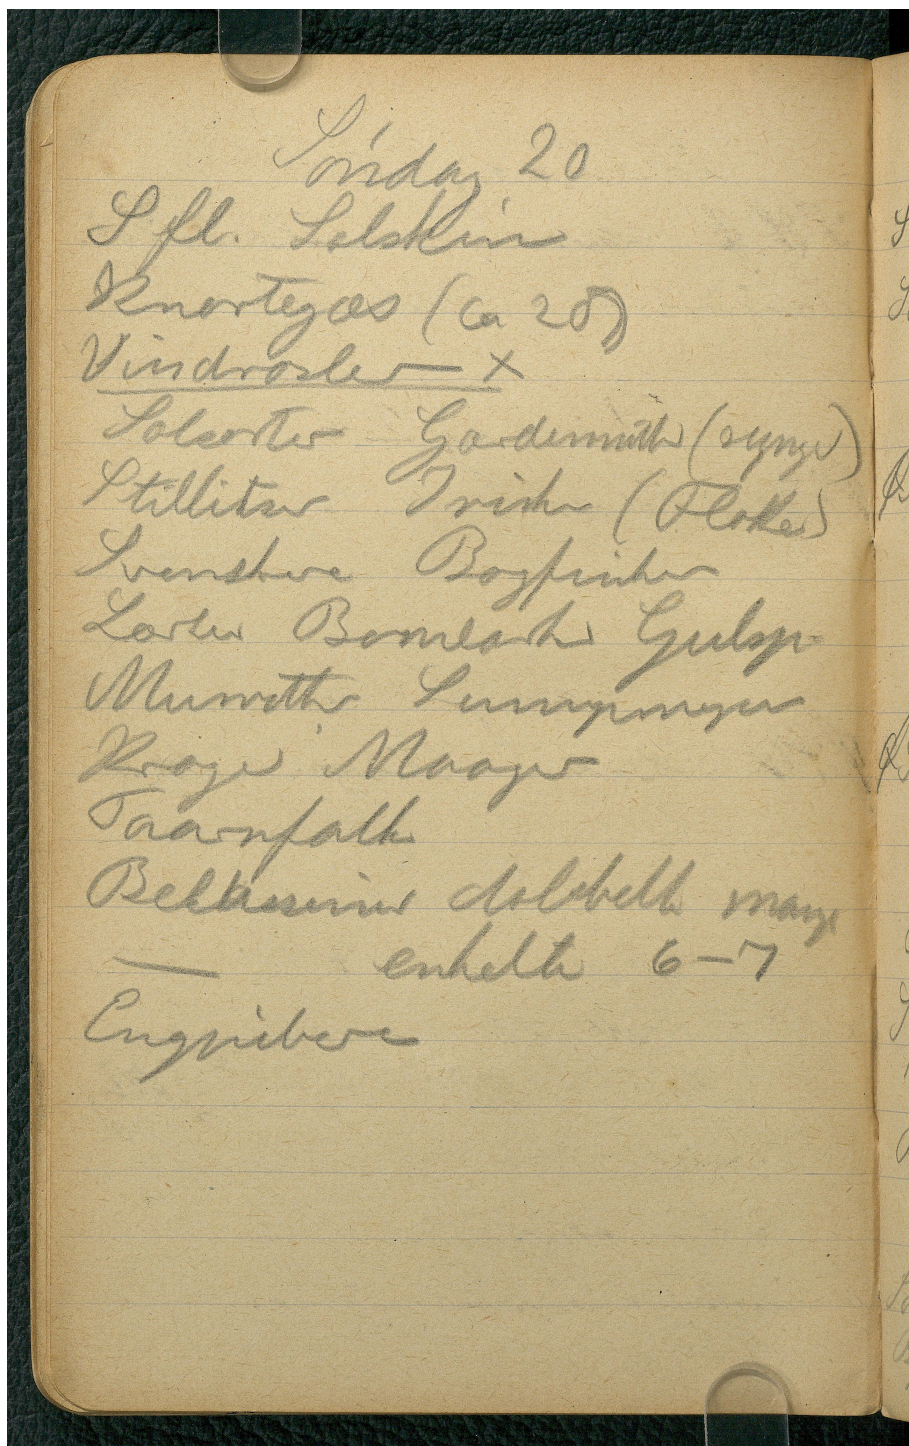 Søndag 20
S fl. Solskin
Knortegæs (ca 28)
Vindrosler — x
Solsorter Gærdesmutter (synger)
Stillitser Irisker (Flokke)
Svenskere Bogfinker
Lærker Bomlærker Gulsp.
Musvitter Sumpmejser
Krager Maager
Taarnfalk
Bekkasiner dobbelte mange
— enkelte 6–7
Engpibere